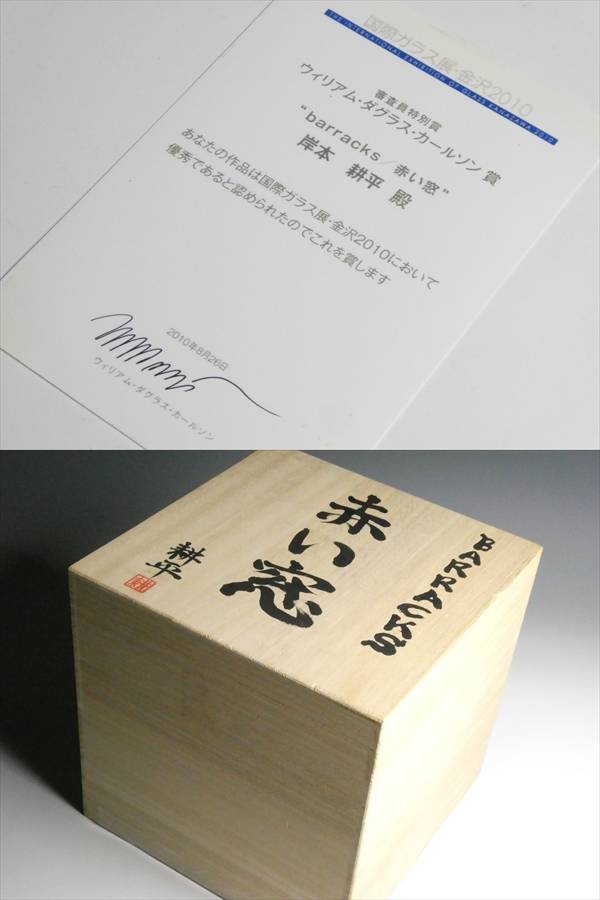 国際ガラス展・金沢2010
THE INTERNATIONAL EXHIBITION OF GLASS KANAZAWA 2010
審査員特別賞
ウィリアム・ダグラス・カールソン 賞
“barracks／赤い窓”
岸本 耕平 殿
あなたの作品は国際ガラス展・金沢2010において
優秀であると認められたのでこれを賞します
2010年8月26日
ウィリアム・ダグラス・カールソン
BARRACKS
赤い窓
耕平